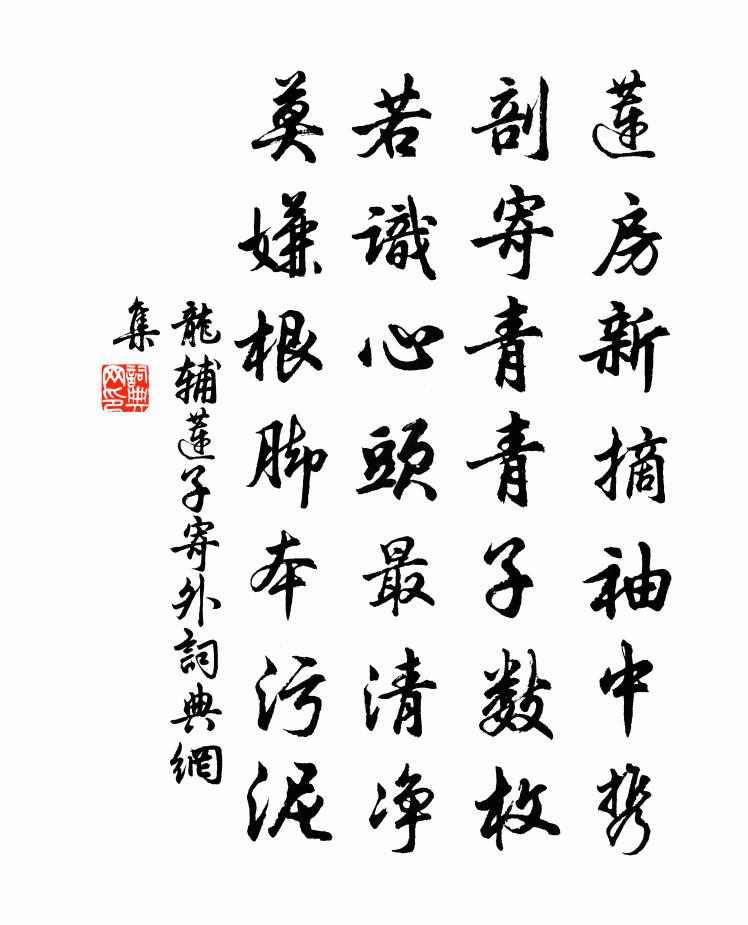 蓮房新摘袖中携
剖寄青青子數枚
若識心頭最清净
莫嫌根脚本污泥
龍輔蓮子寄外詞典網
集
詞典
网印